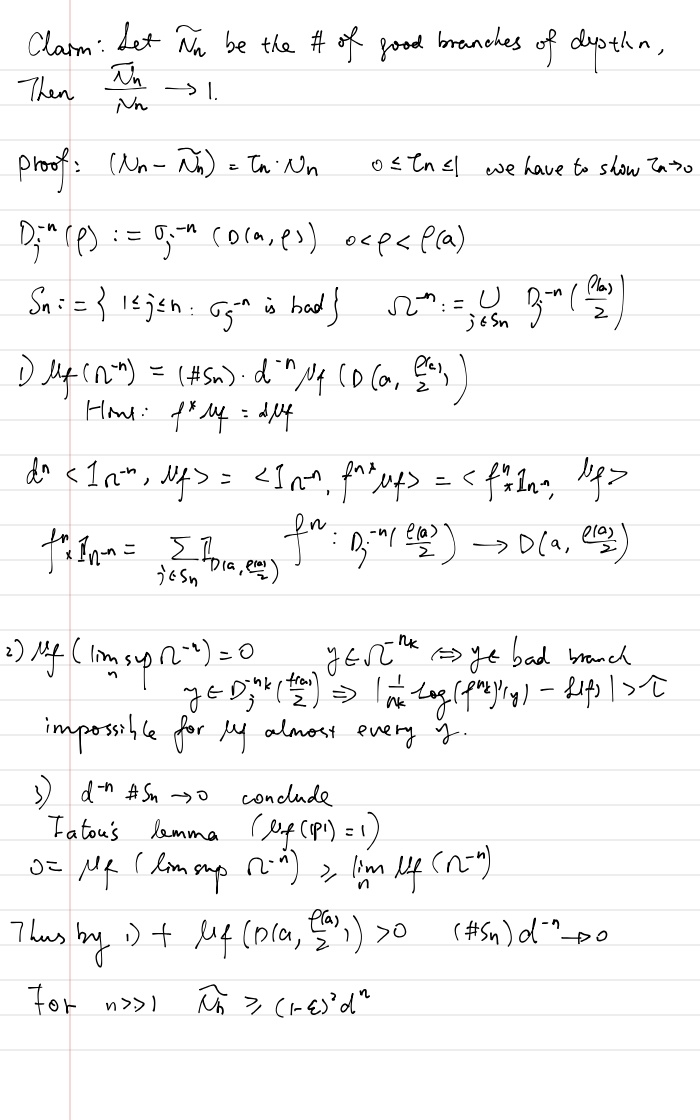 Claim: Let Ñn be the # of good branches of dypth n,
Then Ñn/Nn → 1.
Proof: (Nn - Ñn) = τn · Nn   0 ≤ τn ≤ 1   we have to show τn→0
Dj^-n (ρ) := σj^-n (D(a, ρ))   0<ρ<ρ(a)
Sn := { 1≤j≤n : σj^-n is bad }   Ω^-n := ∪_{j∈Sn} Dj^-n (ρ(a)/2)
1) μf(Ω^-n) = (#Sn) · d^-n μf (D(a, ρ(a)/2))
f* μf = dμf
d^n <1_{Ω^-n}, μf> = <1_{Ω^-n}, f^n* μf> = <f^n_* 1_{Ω^-n}, μf>
f^n_* 1_{Ω^-n} = Σ_{j∈Sn} 1_{D(a, ρ(a)/2)}   f^n : Dj^-n (ρ(a)/2) → D(a, ρ(a)/2)
2) μf (lim sup_n Ω^-n) = 0   y ∈ Ω^-nk ⇔ y ∈ bad branch
y ∈ Dj^-nk (ρ(a)/2) ⇒ |1/nk log (f^nk)'(y) - L(f)| > τ
impossible for μf almost every y.
3) d^-n #Sn → 0 conclude
Fatou's lemma (μf(P1) = 1)
0 = μf (lim sup Ω^-n) ≥ lim_n μf (Ω^-n)
Thus by 1) + μf(D(a, ρ(a)/2)) > 0   (#Sn) d^-n → 0
For n>>1   Ñn ≥ (1-ε)² d^n